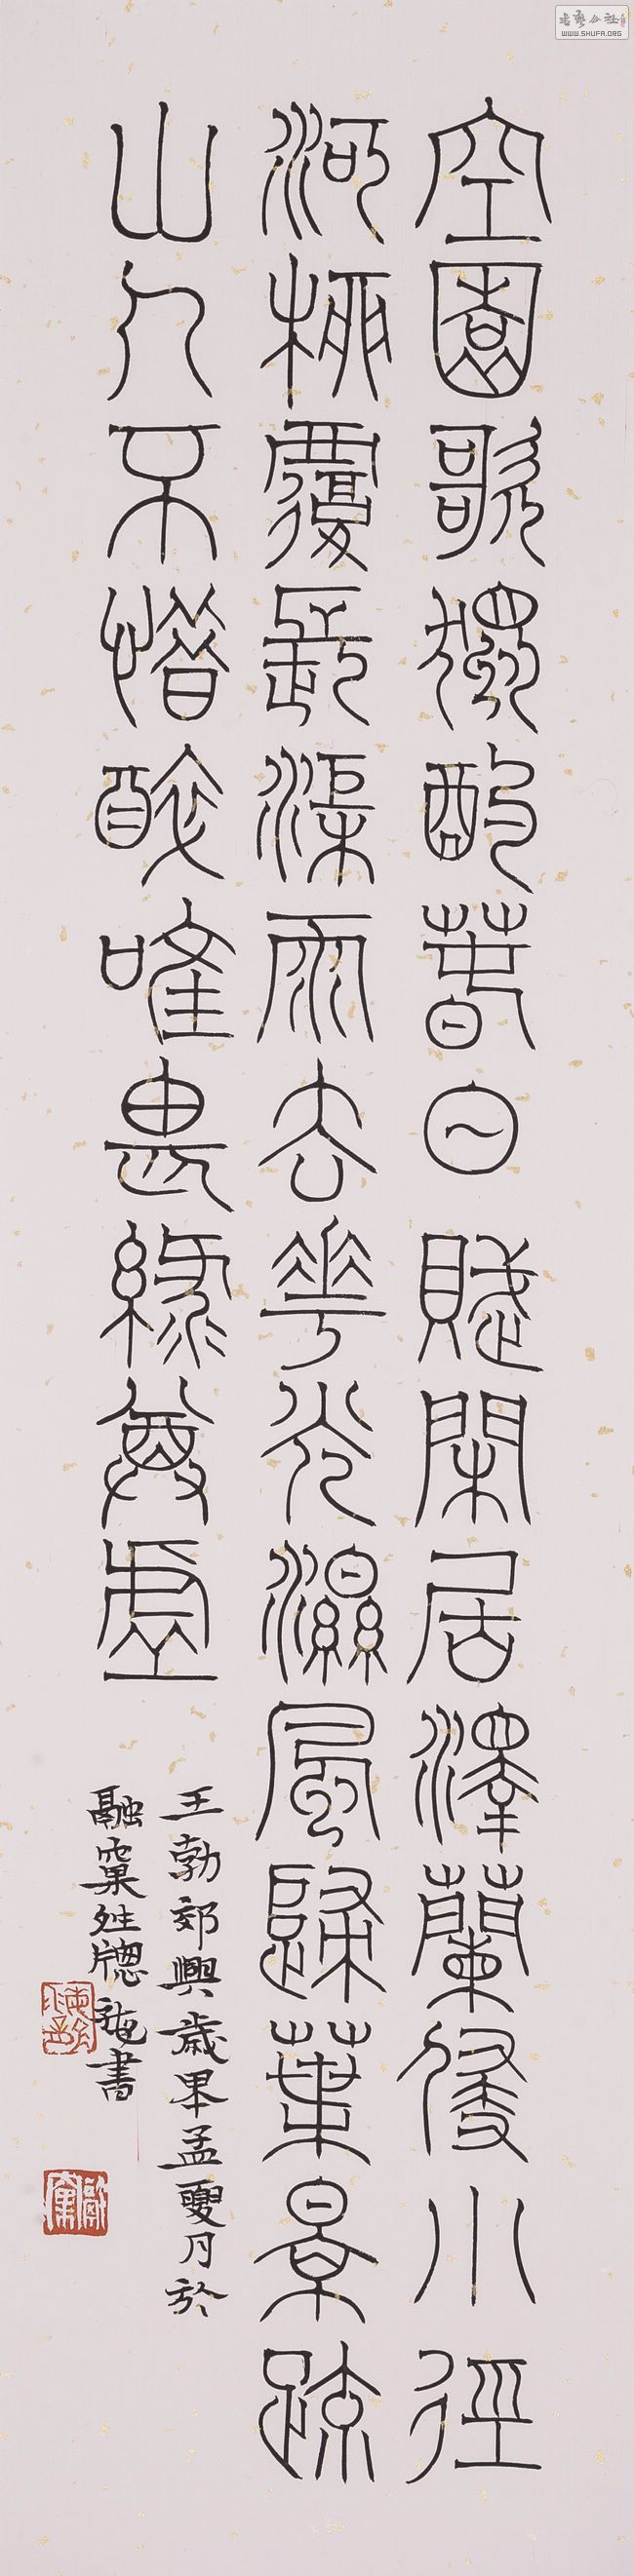 空園歌獨酌萅日賦閑居澤蘭侵小徑
河桺覆長渠雨去華光濕風歸葉景疏
山人不惜醉唯畏綠尊虛
王勃郊興歲孟夏月於
融窠牕書
书艺公社
WWW.SHUFA.ORG